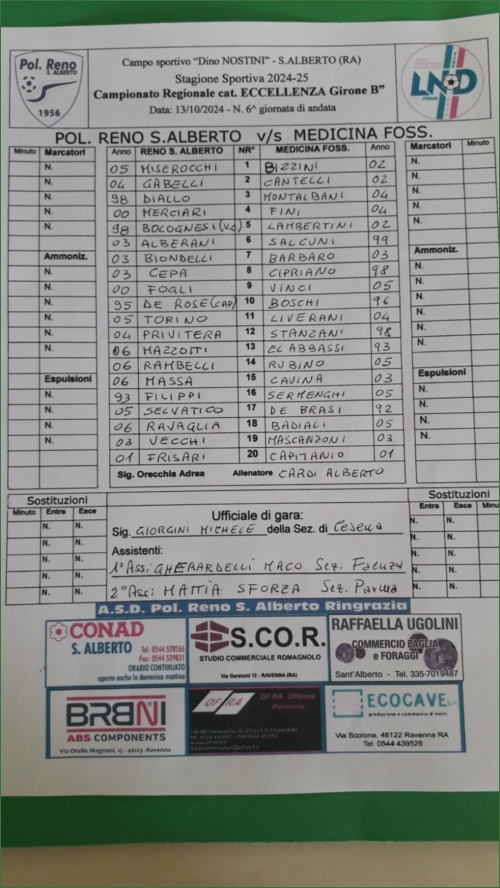 Pol. Reno
S. ALBERTO
1956
Campo sportivo "Dino NOSTINI" - S.ALBERTO (RA)
Stagione Sportiva 2024-25
Campionato Regionale cat. ECCELLENZA Girone B"
Data: 13/10/2024 - N. 6^ giornata di andata
LND
ITALIA
POL. RENO S.ALBERTO v/s MEDICINA FOSS.
Minuto Marcatori Anno RENO S. ALBERTO NR° MEDICINA FOSS. Anno Marcatori Minuto
N. 05 MISEROCCHI 1 BIZZINI 02 N.
N. 04 GABELLI 2 CANTELLI 02 N.
N. 98 DIALLO 3 MONTALBANI 04 N.
N. 00 MERCIARI 4 FINI 04 N.
N. 98 BOLOGNESI (V.C.) 5 LAMBERTINI 02 N.
03 ALBERANI 6 SALCUNI 99
Ammoniz. 03 BIONDELLI 7 BARBARO 03 Ammoniz.
N. 03 CEPA 8 CIPRIANO 98 N.
N. 00 FOGLI 9 VINCI 05 N.
N. 95 DE ROSE (CAP) 10 BOSCHI 96 N.
N. 05 TORINO 11 LIVERANI 04 N.
N. 04 PRIVITERA 12 STANZANI 98 N.
N. 06 MAZZOTTI 13 EL ABBASSI 93 N.
06 RAMBELLI 14 RUBINO 05
Espulsioni 06 MASSA 15 CAVINA 03 Espulsioni
N. 93 FILIPPI 16 SERMENGHI 05 N.
N. 05 SELVATICO 17 DE BRASI 92 N.
N. 06 RAVAGLIA 18 BADIALI 05 N.
N. 03 VECCHI 19 MASCANZONI 03 N.
N. 01 FRISARI 20 CAPITANIO 01 N.
Sig. Orecchia Adrea Allenatore CARDI ALBERTO
Sostituzioni
Minuto Entra Esce
N. N.
N. N.
N. N.
N. N.
N. N.
Ufficiale di gara:
Sig. GIORGINI MICHELE della Sez. di Cesena
Assistenti:
1° Ass: GHERARDELLI MACO Sez. Faenza
2° Ass: MATTIA SFORZA Sez. Parma
Sostituzioni
Entra Esce Minuto
N. N.
N. N.
N. N.
N. N.
N. N.
A.S.D. Pol. Reno S. Alberto Ringrazia
CONAD
S. ALBERTO
Tel: 0544 528266
Fax: 0544 529831
ORARIO CONTINUATO
aperto anche la domenica mattina
S.CO.R.
STUDIO COMMERCIALE ROMAGNOLO
Via Garatoni 12 - RAVENNA (RA)
RAFFAELLA UGOLINI
COMMERCIO PAGLIA
e FORAGGI
Sant'Alberto - Tel. 335-7019487
BRBNI
ABS COMPONENTS
Via Otello Magnani, 15 - 48123 -Ravenna
OFRA
OFRA Officine
Ravenna
ECOCAVE S.r.l.
produzione e commercio di inerti
Via Scolone, 48122 Ravenna RA
Tel. 0544 439526